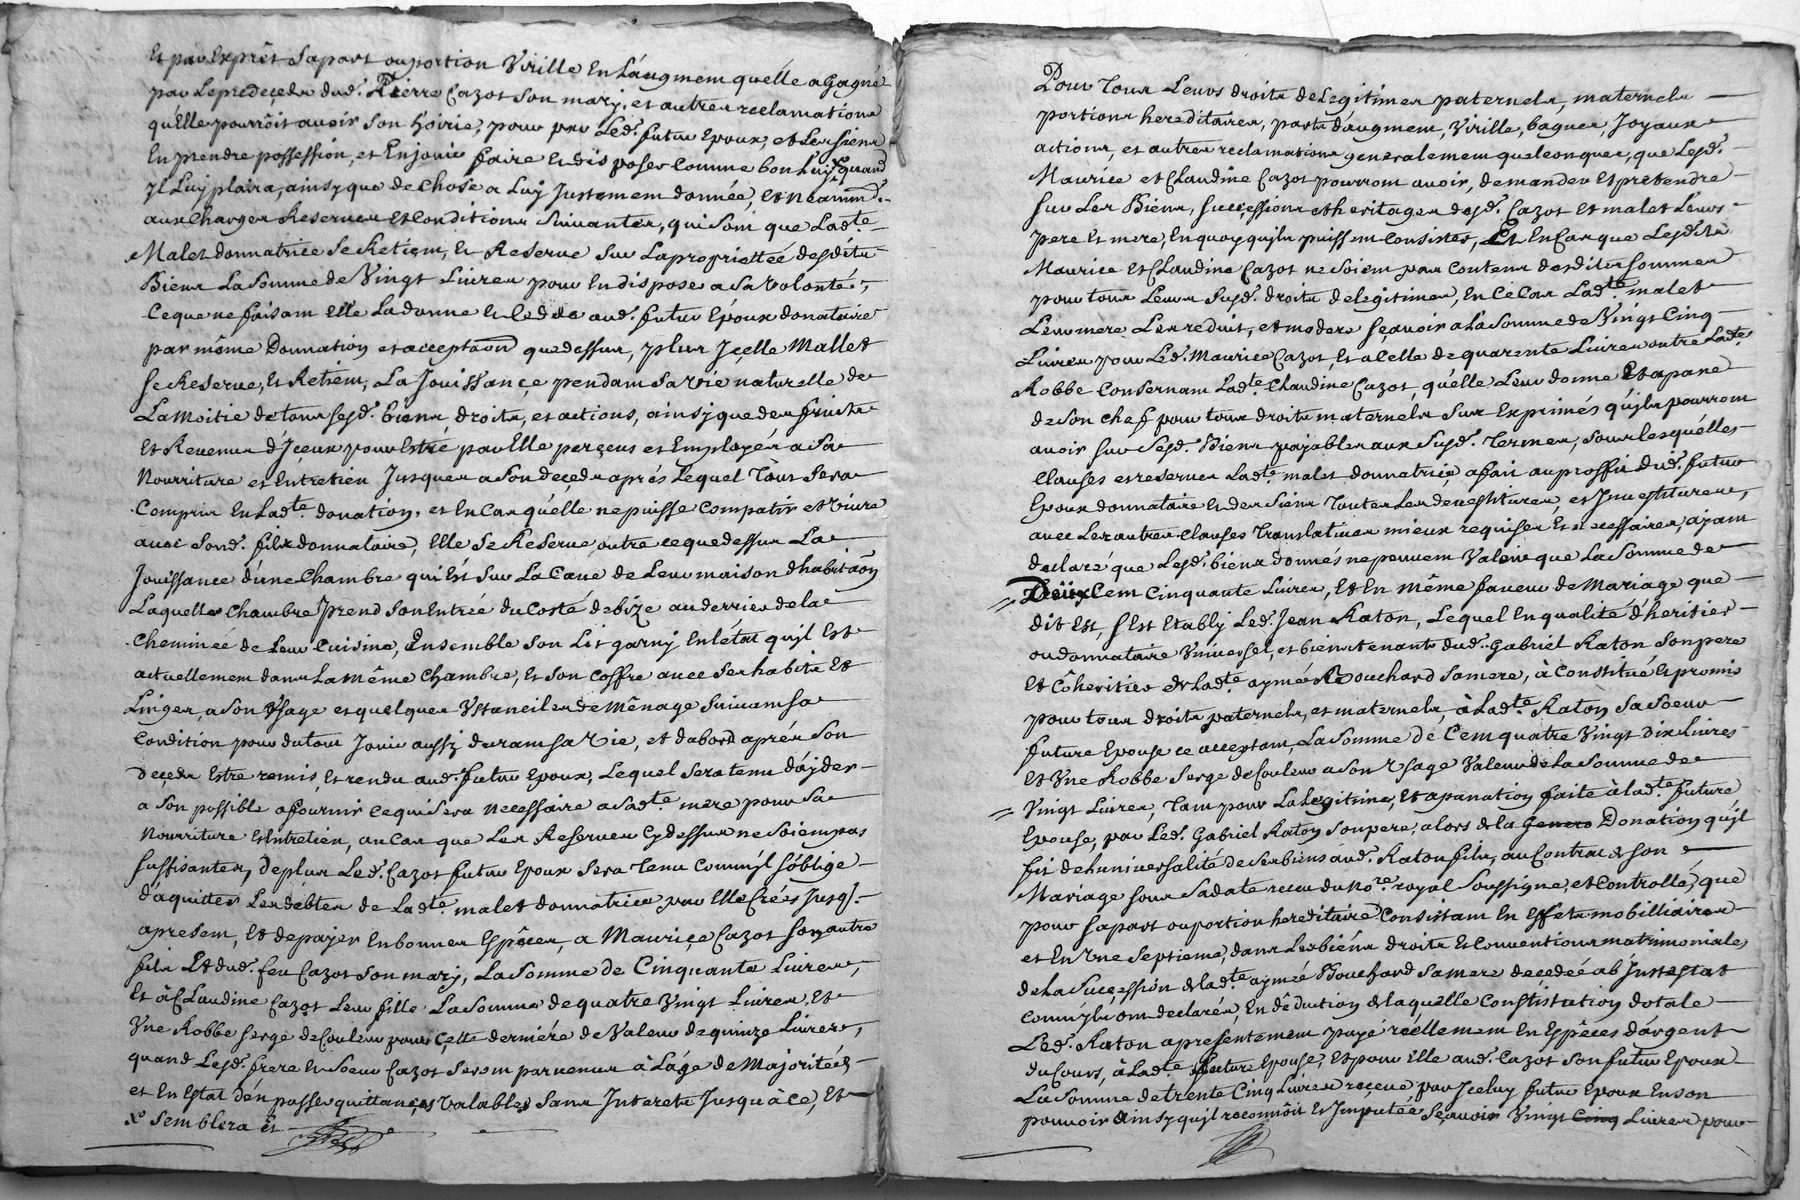 Et par Exprês sa part ou portion Virille En L'augment quélle a Gagné
par Le predeçedz dud. Pierre Cazot son mary, et autres reclamations
qu'Elle pourróit avoir son hoirie, pour par Led. futur Epoux, et Les siens
En prendre possession, et En jouir faire et disposer comme bon Luy + quand
Jl Luy plaira, ainsy que de chose a Luy Justement donnée, et neamm.
aux charges Reserves et conditions suivantes, qui sont que Ladte
Malet donnatrice se Retient, et Reserve sur La proprietteé desdits
Biens La somme de Vingt Livres pour En dispose a sa volonté,
Ce que ne faisant elle La donne et cedde aud. futur Epoux donataire
par même Donnation et acceptaôn que dessus, plus Jçelle Mallet
se Reserve, et Retient, La Jouissançe pendant sa vie naturelle de
La moitie de tous sesd. biens, droits, et actions, ainsy que des fruits
et Revenus d'Jçeux pour Estre par Elle perçeus et Employés a sa
Nourriture et Entretien Jusques a son deçedz aprés Lequel Tout sera
Compris En Ladte donation, et En cas quélle ne puisse compatir et vivre
avec sond. fils donnataire, Elle se Reserve outre ce que dessus La
Jouissance d'une Chambre qui Est sur La Cave de Leur maison d'habitaôn
Laquelle chambre prend son entreé du Costé de bize au derrier de la
cheminée de Leur Cuisine, Ensemble son Lit garny En l'état qu'jl est
actuellement dans La même Chambre, et son coffre avec ses habits et
Linges, a son Vsage et quelques Vstanciles de Mênage suivant sa
condition pour du tout Jouir aussy durant sa vie, et d'abord aprés son
deçedz Estre remis, et rendu aud. futur Epoux, Lequel sera tenu d'ayder
a son possible a fournir ce qui sera necessaire a sadte mere pour sa
Nourriture et Entretien, au cas que Les Reserves cy dessus ne soient pas
suffisantes, de plus Led. Cazot futur Epoux sera Tenu comm'jl s'óblige
d'aquitter Les débtes de Ladte malet donnatrice par Elle Créés Jusq.
apresent, et de payer En bonnes Espêces, a Mauriçe Cazot son autre
fils et dud. feu Cazot son mary, La somme de Cinquante Livres,
et à Claudine Cazot Leur fille La somme de quatre Vingt Livres, et
Vne Robbe serge de Couleur pour Cette derniére de Valeur de quinze Livres,
quand Lesd. frere et soeur Cazot seront parvenus à L'age de Majoriteé
et En Estat d'en passer quittançes Valables sans Interets Jusqu'à Ce, et
+ semblera et
Pour Tous Leurs droits de Legitimes paternels, maternels
portions hereditaires, parts d'augment, Virille, bagues, Joyaux
actions, et autres reclamations generalement quelconques, que Lesd.
Maurice et Claudine Cazot pourront avoir, demander et pretendre
sur Les Biens, successions et heritages desd. Cazot et malet Leurs
pere et mere, En quoy qu'jls puissent consister, Et En Cas que Lesdits
Maurice et Claudine Cazot ne soient pas Contens desdites sommes
pour tous Leurs susd. droits de Legitimes, En Ce Cas Ladte malet
Leur mere Les reduit, et modere sçavoir a La somme de Vingt Cinq
Livres pour Led. Maurice Cazot, et a Celle de quarente Livres outre Ladte
Robbe Consernant Ladte Claudine Cazot, quélle Leur donne Et apane
de son chef pour tous droits maternels sus Exprimés qu'jls pourront
avoir sur sesd. Biens payables aux susd. Termes, sous lesquélles
clauses et reserves Ladte malet donnatriçe a fait au proffit dud. futur
Epoux donnataire et des siens Toutes Les devestitures, et Jnvestitures,
avec Les autres clauses Translatives mieux requises et necessaires, ayant
declaré que Lesd. biens donnés ne peuvent Valoir que La somme de
Deüx Cent Cinquante Livres, Et En même faveur de Mariage que
dit Est, s'Est Etably Led. Jean Raton, Lequel En qualité d'heritier
ou donnataire Vniversel, et bien tenant dud. Gabriel Raton son pere
et Côheritier de Ladte aymée Bouchard sa mere, à Constitué et promis
pour tous droits paternels, et maternels, à Ladte Raton sa soeur
future Epouse ce acceptant, La somme de Cent quatre Vingt dix Livres
et Vne Robbe serge de Couleur a son Vsage Valeur de La somme de
Vingt Livres, Tant pour La Legitime, et apanation faite à ladte future
Epouse, par Led. Gabriel Raton son pere, alors de la Donation qu'jl
fit de Luniversalité de ses biens aud. Raton fils, au Contrat de son
Mariage sous sa date receu du No.re royal soussigne, et Controllé, que
pour sa part ou portion hereditaire Consistant En Effets mobilliaires
et En Vne septieme, dans Les biéns droits et Conventions matrimoniales
de La Sucçession de Ladte aymée Bouchard sa mere decedée ab Jntestat
comm'jls ont declaréz, En déduction de laquelle Constitution dotale
Led. Raton apresentement payé réellement En Espêces d'argent
du Cours, à Ladte future Epouse, et pour Elle aud. Cazot son futur Epoux
La somme de trente Cinq Livres reçeue par Jceluy futur Epoux En son
pouvoir ainsy qu'jl reconnoît et Jmputée sçavoir Vingt Cinq Livres pour